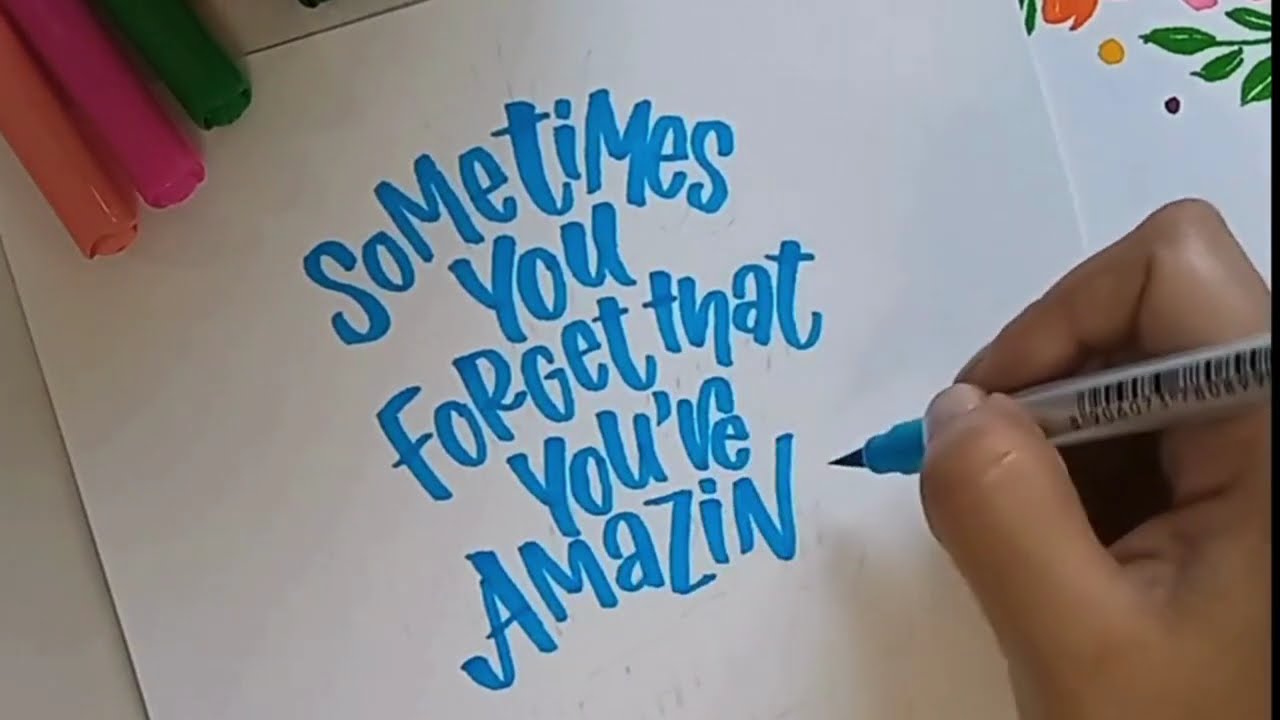 Sometimes
you
forget that
you've
Amazin